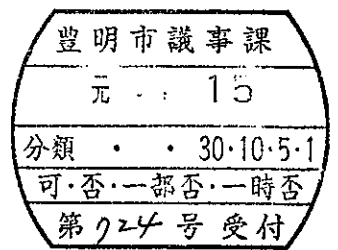 豊明市議事課
元 . : 15
分類 ・ ・ 30・10・5・1
可・否・一部否・一時否
第724号受付